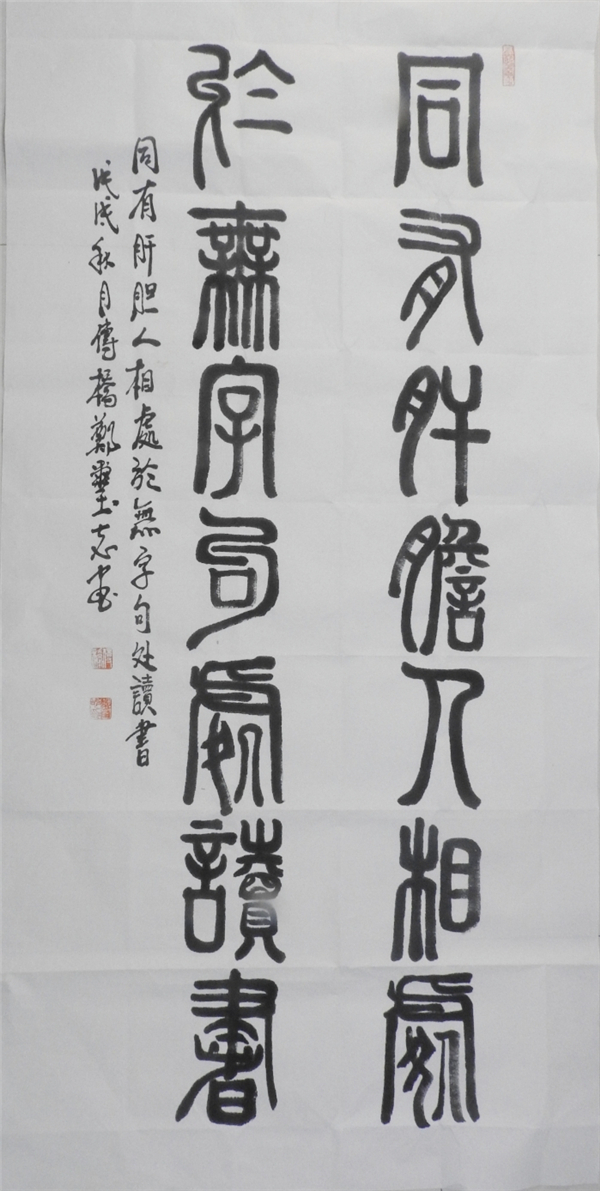 同有肝膽人相處
於無字句處讀書
同有肝胆人相處於無字句处讀書
戊戌秋月傅橋鄭璽志书